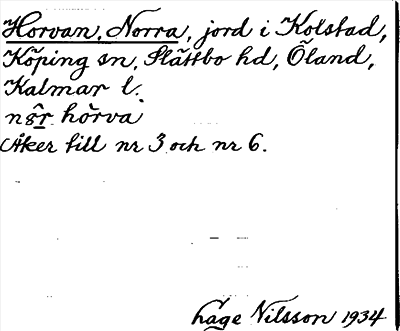 Horvan, Norra, jord i Kolstad,
Köping sn, Slättbo hd, Öland,
Kalmar l.
hòrva
Åker till nr 3 och nr 6.
Åge Nilsson 1934